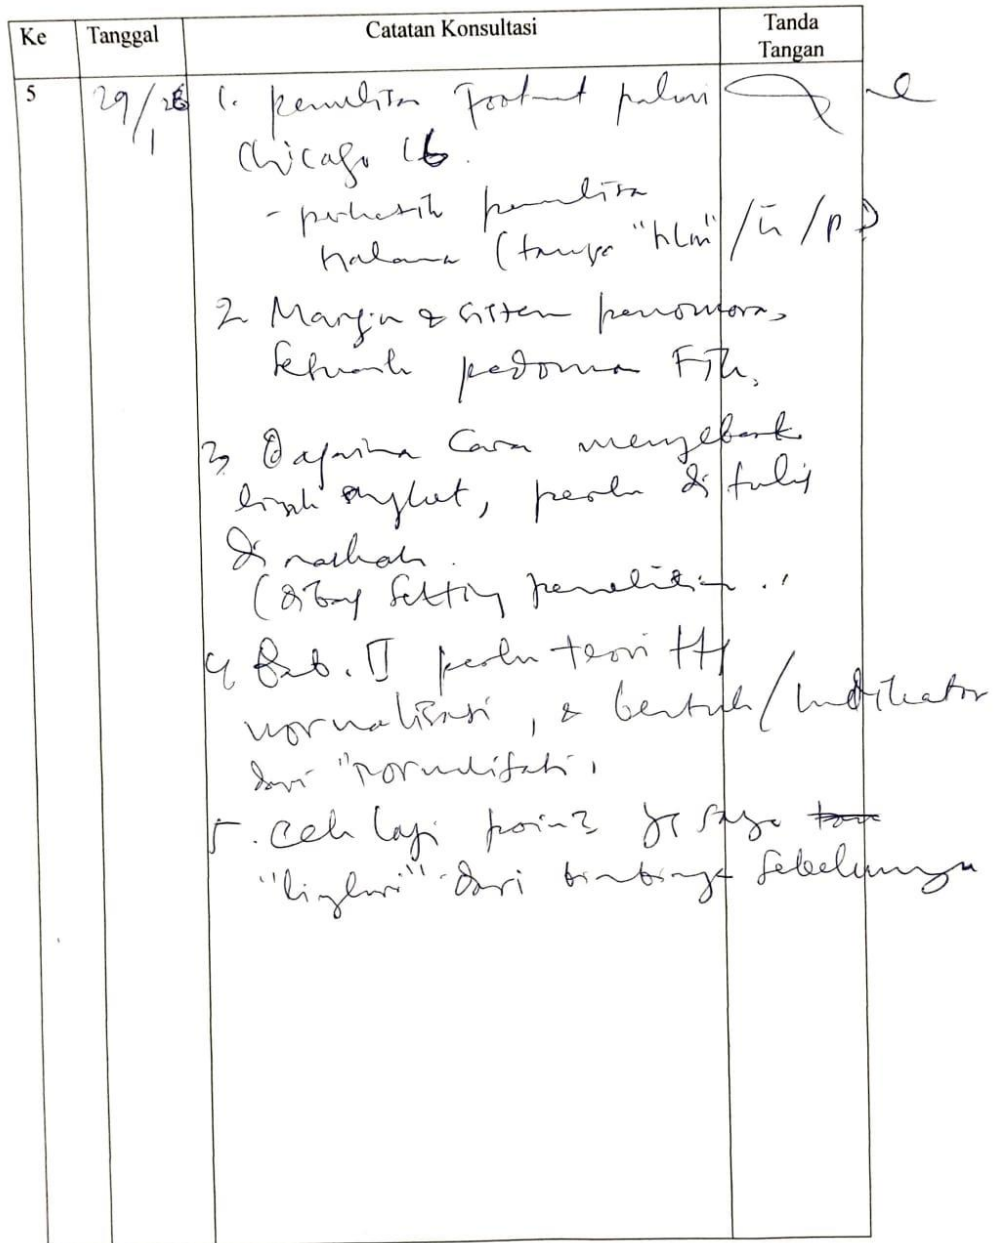 Ke Tanggal Catatan Konsultasi Tanda Tangan
5 29/1 26 1. penulisan Footnot pakai
Chicago 16.
- perhatik penulisan
halaman (tanpa "hlm" / /p)
2. Margin & sistem penomoran,
sesuaik pedoman
3. Bagaimana Cara menyebark
angket, perlu di tulis
di naskah.
(dibag Setting penelitian.
4. Bab. II perlu teori ttg
normalisasi, & bentuk/indikator
dari "normalisasi,
5. Cek lagi poin2 yg saya
"lingkari" dari bimbinga sebelumnya